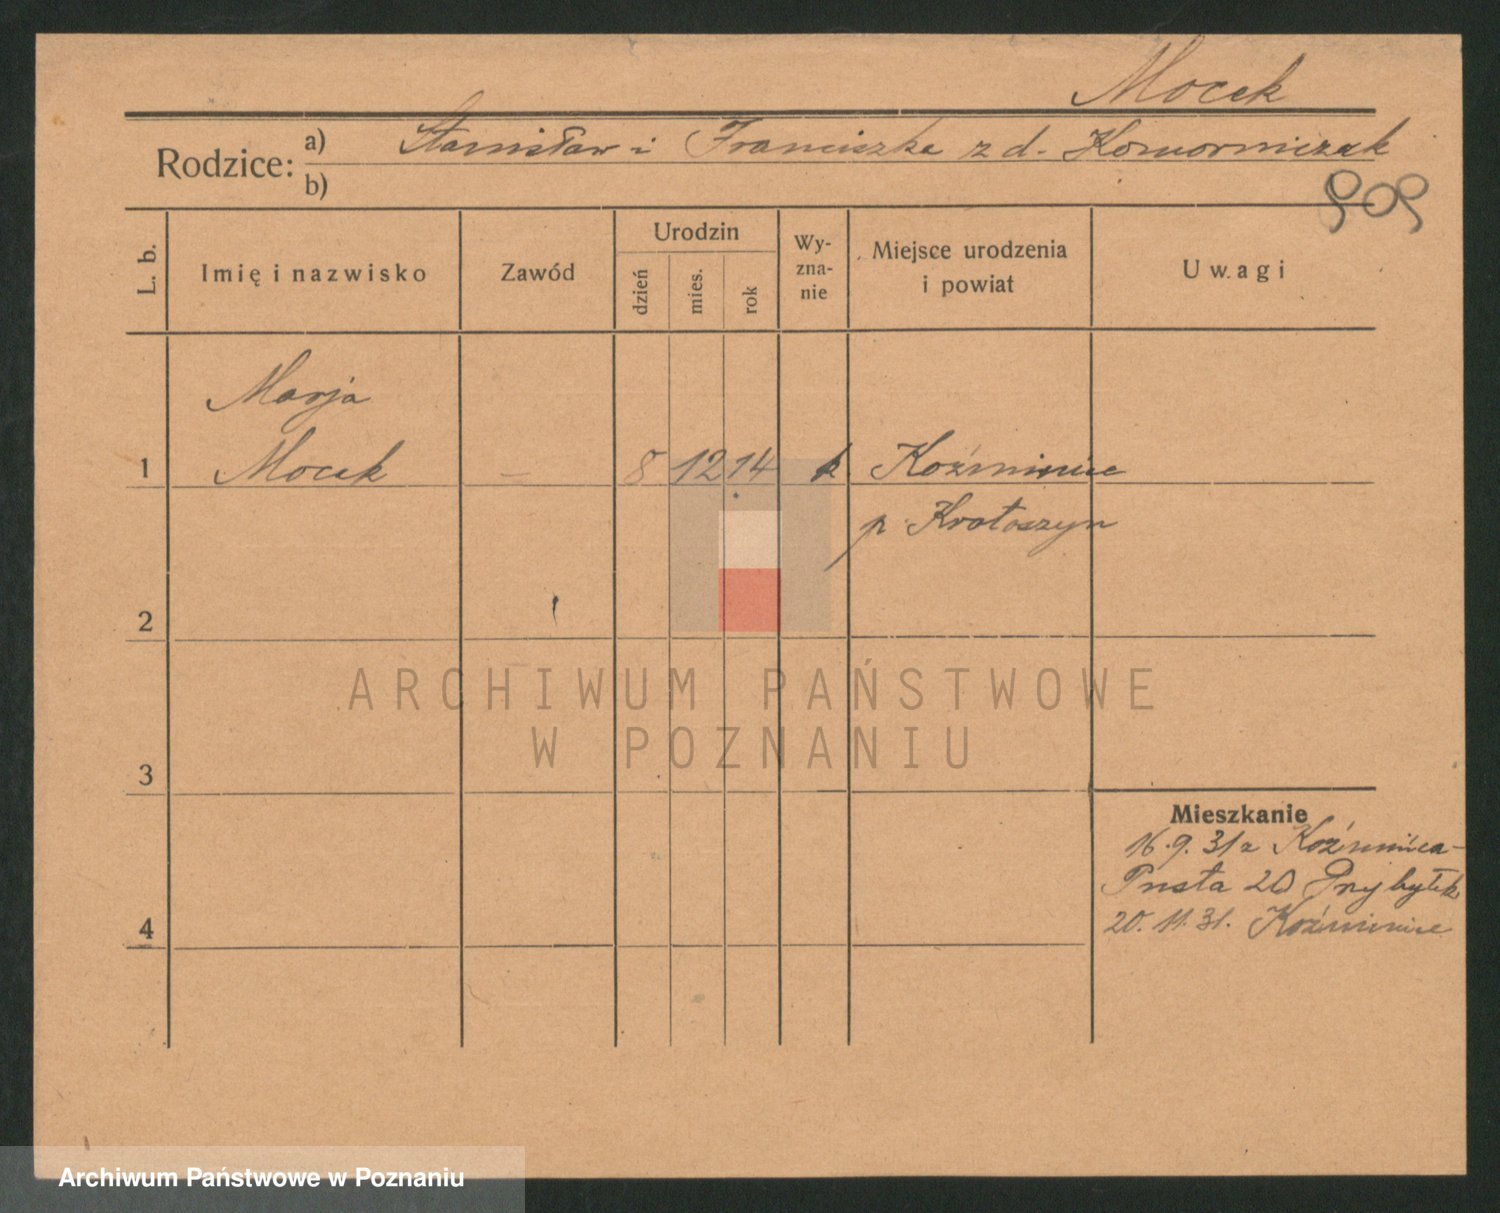 Mocek
Rodzice: a) Stanisław i Franciszka z d. Komorniczak
b)
909
L. b.
Imię i nazwisko
Zawód
Urodzin
dzień
mies.
rok
Wy-
zna-
nie
Miejsce urodzenia
i powiat
Uwagi
Marja
1 Mocek - 8 12 14 k Koźminiec
p. Krotoszyn
2
ARCHIWUM PAŃSTWOWE
W POZNANIU
3
Mieszkanie
16.9.31 z Koźmińca-
Pusta 20
4
20.11.31. Koźminiec
Archiwum Państwowe w Poznaniu